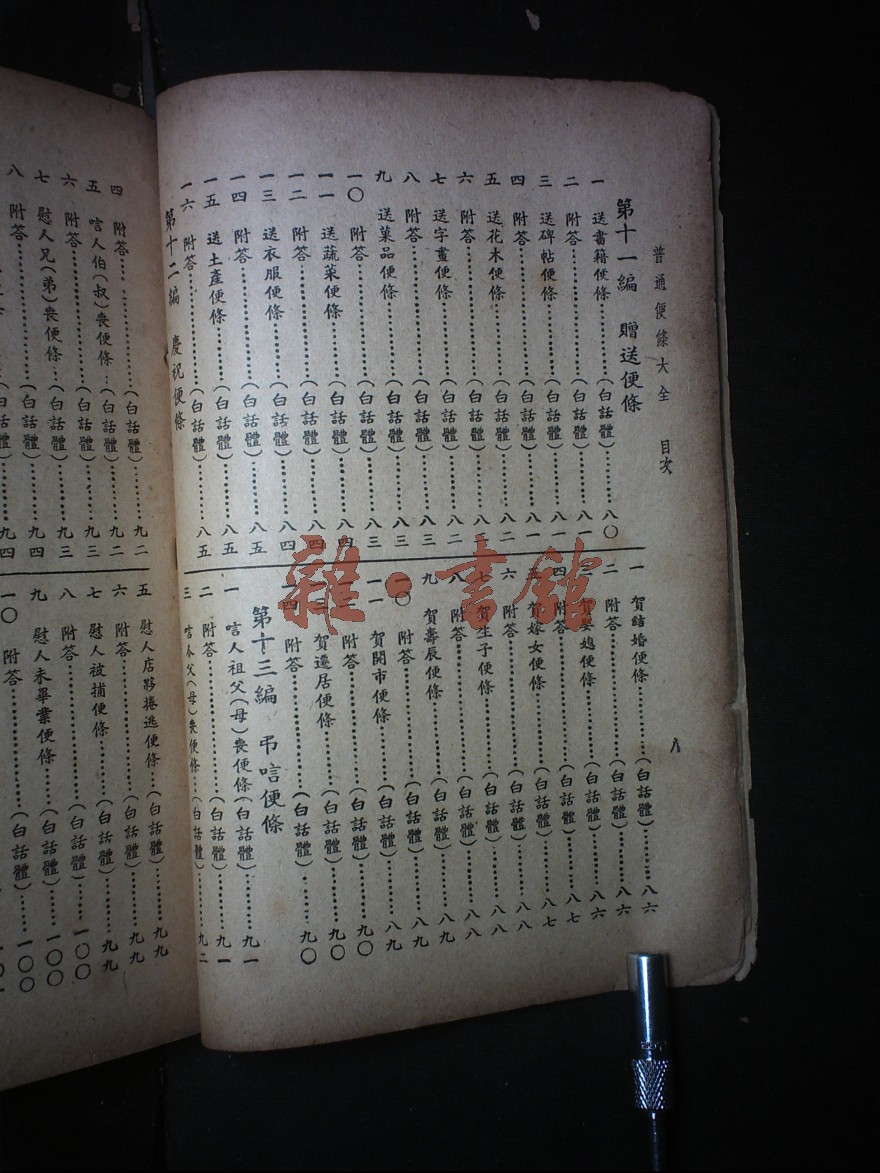 普通便條大全 目次
八
第十一編 贈送便條
一 送書籍便條……(白話體)……八〇
二 附答……(白話體)……八一
三 送碑帖便條……(白話體)……八一
四 附答……(白話體)……八二
五 送花木便條……(白話體)……八二
六 附答……(白話體)……八二
七 送字畫便條……(白話體)……八三
八 附答……(白話體)……八三
九 送菓品便條……(白話體)……八三
一〇 附答……(白話體)……八四
一一 送蔬菜便條……(白話體)……八四
一二 附答……(白話體)……八四
一三 送衣服便條……(白話體)……八五
一四 附答……(白話體)……八五
一五 送土產便條……(白話體)……八五
一六 附答……(白話體)……八五
第十二編 慶祝便條
一 賀結婚便條……(白話體)……八六
二 附答……(白話體)……八六
三 賀娶媳便條……(白話體)……八六
四 附答……(白話體)……八七
五 賀嫁女便條……(白話體)……八七
六 附答……(白話體)……八八
七 賀生子便條……(白話體)……八八
八 附答……(白話體)……八八
九 賀壽辰便條……(白話體)……八九
一〇 附答……(白話體)……八九
一一 賀開市便條……(白話體)……八九
附答……(白話體)……九〇
三 賀遷居便條……(白話體)……九〇
四 附答……(白話體)……九〇
第十三編 弔唁便條
一 唁人祖父(母)喪便條(白話體)……九一
二 附答……(白話體)……九一
三 唁人父(母)喪便條……(白話體)……九二
四 附答……(白話體)……九二
五 唁人伯(叔)喪便條…(白話體)……九二
六 附答……(白話體)……九三
七 慰人兄(弟)喪便條…(白話體)……九三
八 附答……(白話體)……九四
五 慰人店夥捲逃便條…(白話體)……九九
六 附答……(白話體)……九九
七 慰人被捕便條……(白話體)……九九
八 附答……(白話體)……一〇〇
九 慰人未畢業便條…(白話體)……一〇〇
一〇 附答……(白話體)……一〇〇
雜·書館